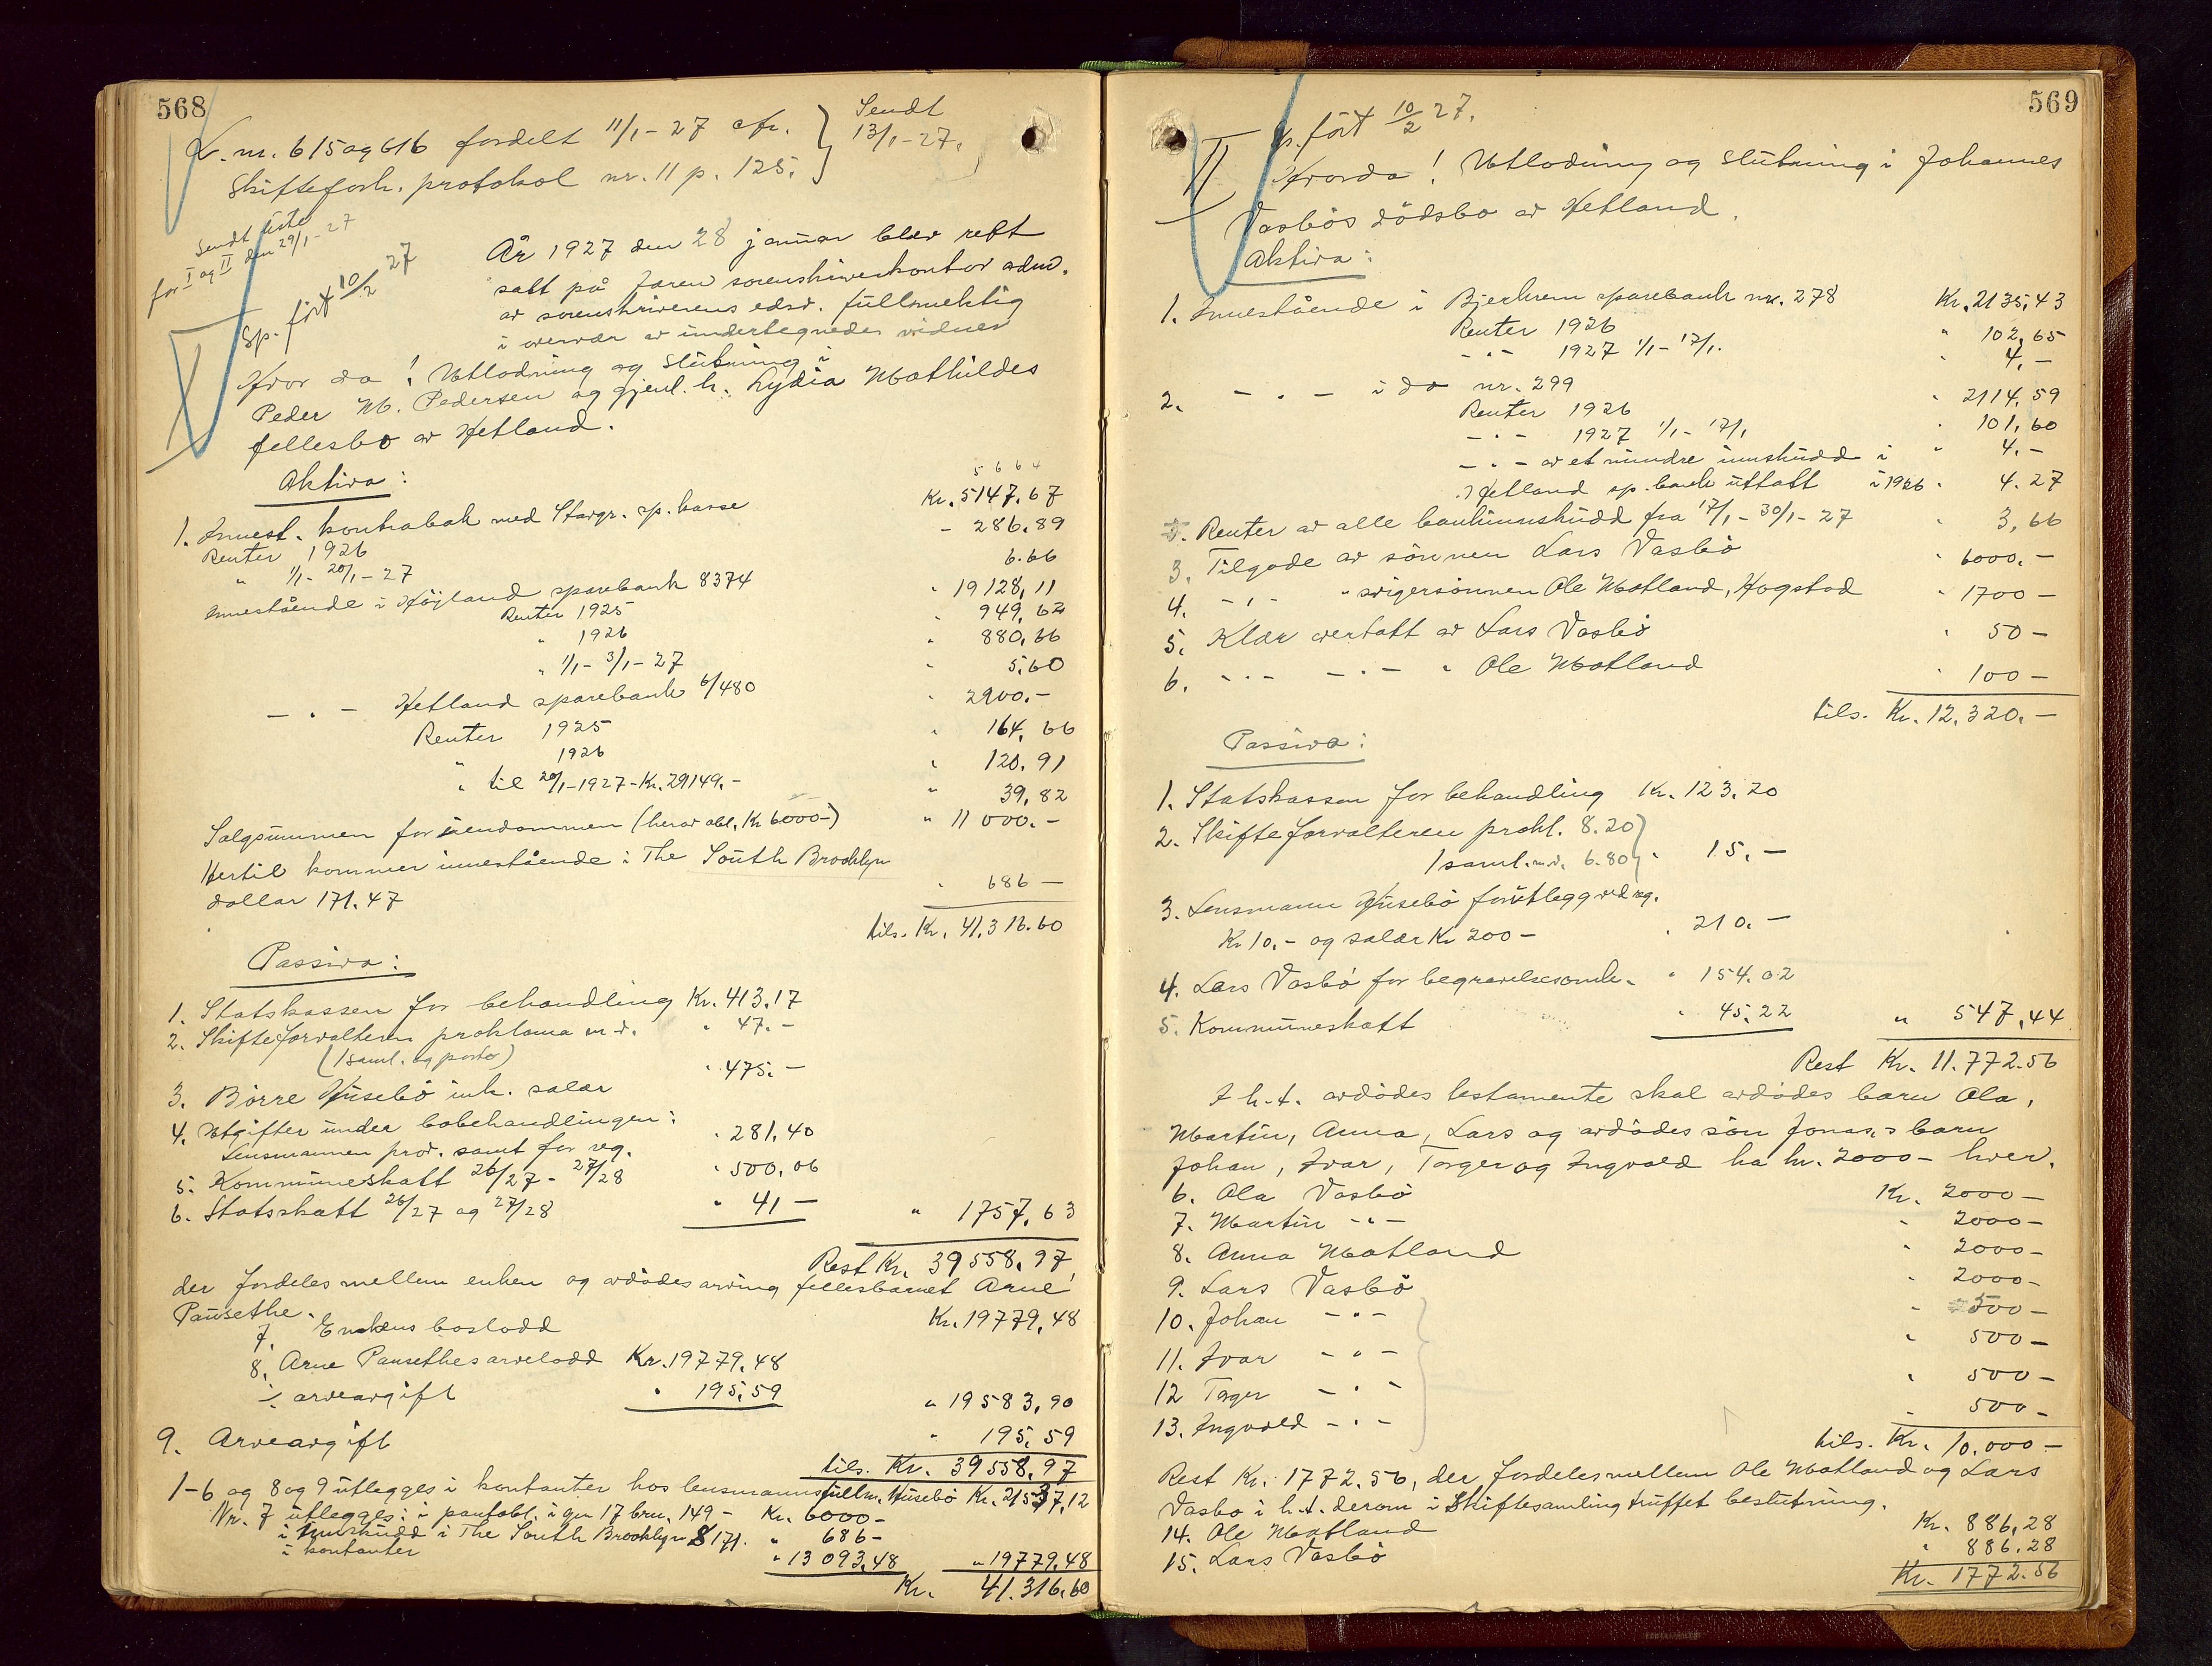 568
K. nr. 615 og 616 fordelt 11/1-27 cfr.
Skifteforh. protokol nr. 11 p. 125.
Sendt
13/1-27.
Sendt liste
for I og II den 29/1-27
Sp. ført 10/2 27
År 1927 den 28 januar blev rett
satt på Jæren sorenskriverkontor adm.
av sorenskriverens edsv. fullmektig
i overvær av undertegnede vidner
I
Hvor da! Utlodning og slutning i
Peder M. Pedersen og gjenl. h. Lydia Mathildes
fellesbo av Hetland.
Aktiva:
5664
1. Innest. kontrabok med Stavgr. sp. kasse Kr. 5147.67
Renter 1926 - 286.89
" 1/1-20/1-27 6.66
Innestående i Høyland sparebank 8374 " 19128,11
Renter 1925 " 949,62
" 1926 " 880,66
" 1/1-3/1-27 " 5,60
- " - Hetland sparebank 6/480 " 2900.-
Renter 1925 " 164,66
" 1926 " 120.91
" til 20/1-1927-Kr. 29149.- " 39,82
Salgsummen for eiendommen (herav obl. Kr 6000-) " 11000.-
Hertil kommer innestående i The South Brooklyn
dollar 171.47 " 686-
tils. Kr. 41.316.60
Passiva:
1. Statskassen for behandling Kr. 413.17
2. Skifteforvalteren proklama m.v. " 47.-
(1 saml. og porto)
3. Börre Husebö ink. salær " 475.-
4. Utgifter under bobehandlingen:
Lensmannen prov. samt for reg. " 281,40
5. Kommuneskatt 26/27-27/28 " 500,06
6. Statsskatt 26/27 og 27/28 " 41- " 1757,63
Rest Kr. 39558.97
der fordeles mellem enken og avdödes arving fellesbarnet Arne
Pausethe.
7. Enkens boslodd Kr. 19779,48
8. Arne Pausethes arvelodd Kr. 19779.48
÷ arveavgift " 195,59 " 19583,90
9. Arveavgift " 195,59
tils. Kr. 39558.97
1-6 og 8 og 9 utlegges i kontanter hos lensmannsfullm. Husebö Kr. 21537,12
Nr. 7 utlegges: i pantobl. i gnr 17 bnr. 149- Kr. 6000-
i innskudd i The South Brooklyn $ 171. " 686-
i kontanter " 13093,48 " 19779,48
Kr. 41.316,60
569
Sp. ført 10/2 27.
II
Hvorda! Utlodning og slutning i Johannes
Vasbös dödsbo av Hetland.
Aktiva:
1. Innestående i Bjerkrem sparebank nr. 278 Kr. 2135,43
Renter 1926 " 102,65
- " - 1927 1/1-17/1. " 4,-
2. - " - i do nr. 299 " 2114,59
Renter 1926 " 101,60
- " - 1927 1/1-17/1 " 4.-
- " - av et mindre innskudd i
Hetland sp.bank uttatt i 1926 " 4.27
Renter av alle bankinnskudd fra 17/1-30/1-27 " 3,66
3. Tilgode av sönnen Lars Vasbö " 6000.-
4. - " - " svigersönnen Ole Matland, Hogstad " 1700-
5. Klær overtatt av Lars Vasbö " 50-
6. - " - - " - " Ole Matland " 100-
tils. Kr. 12.320.-
Passiva:
1. Statskassen for behandling Kr. 123.20
2. Skifteforvalteren prokl. 8.20
1 saml. m.v. 6.80 " 15.-
3. Lensmann Husebö for utlegg ved reg.
Kr 10.- og salær Kr 200- " 210.-
4. Lars Vasbö for begravelsesomk. " 154.02
5. Kommuneskatt " 45.22 " 547,44
Rest Kr. 11.772.56
I h.t. avdödes testamente skal avdödes barn Ola,
Martin, Anna, Lars og avdödes sön Jonas,s barn
Johan, Ivar, Torger og Ingvald ha kr. 2000- hver.
6. Ola Vasbö Kr. 2000-
7. Martin - " - " 2000-
8. Anna Matland " 2000-
9. Lars Vasbö " 2000-
10. Johan - " - " 500-
11. Ivar - " - " 500-
12 Torger - " - " 500-
13. Ingvald - " - " 500-
tils. Kr. 10.000-
Rest Kr. 1772.56, der fordeles mellem Ole Matland og Lars
Vasbo i h.t. derom i Skiftesamling truffet beslutning.
14. Ole Matland Kr. 886,28
15. Lars Vasbö " 886.28
Kr. 1772.56